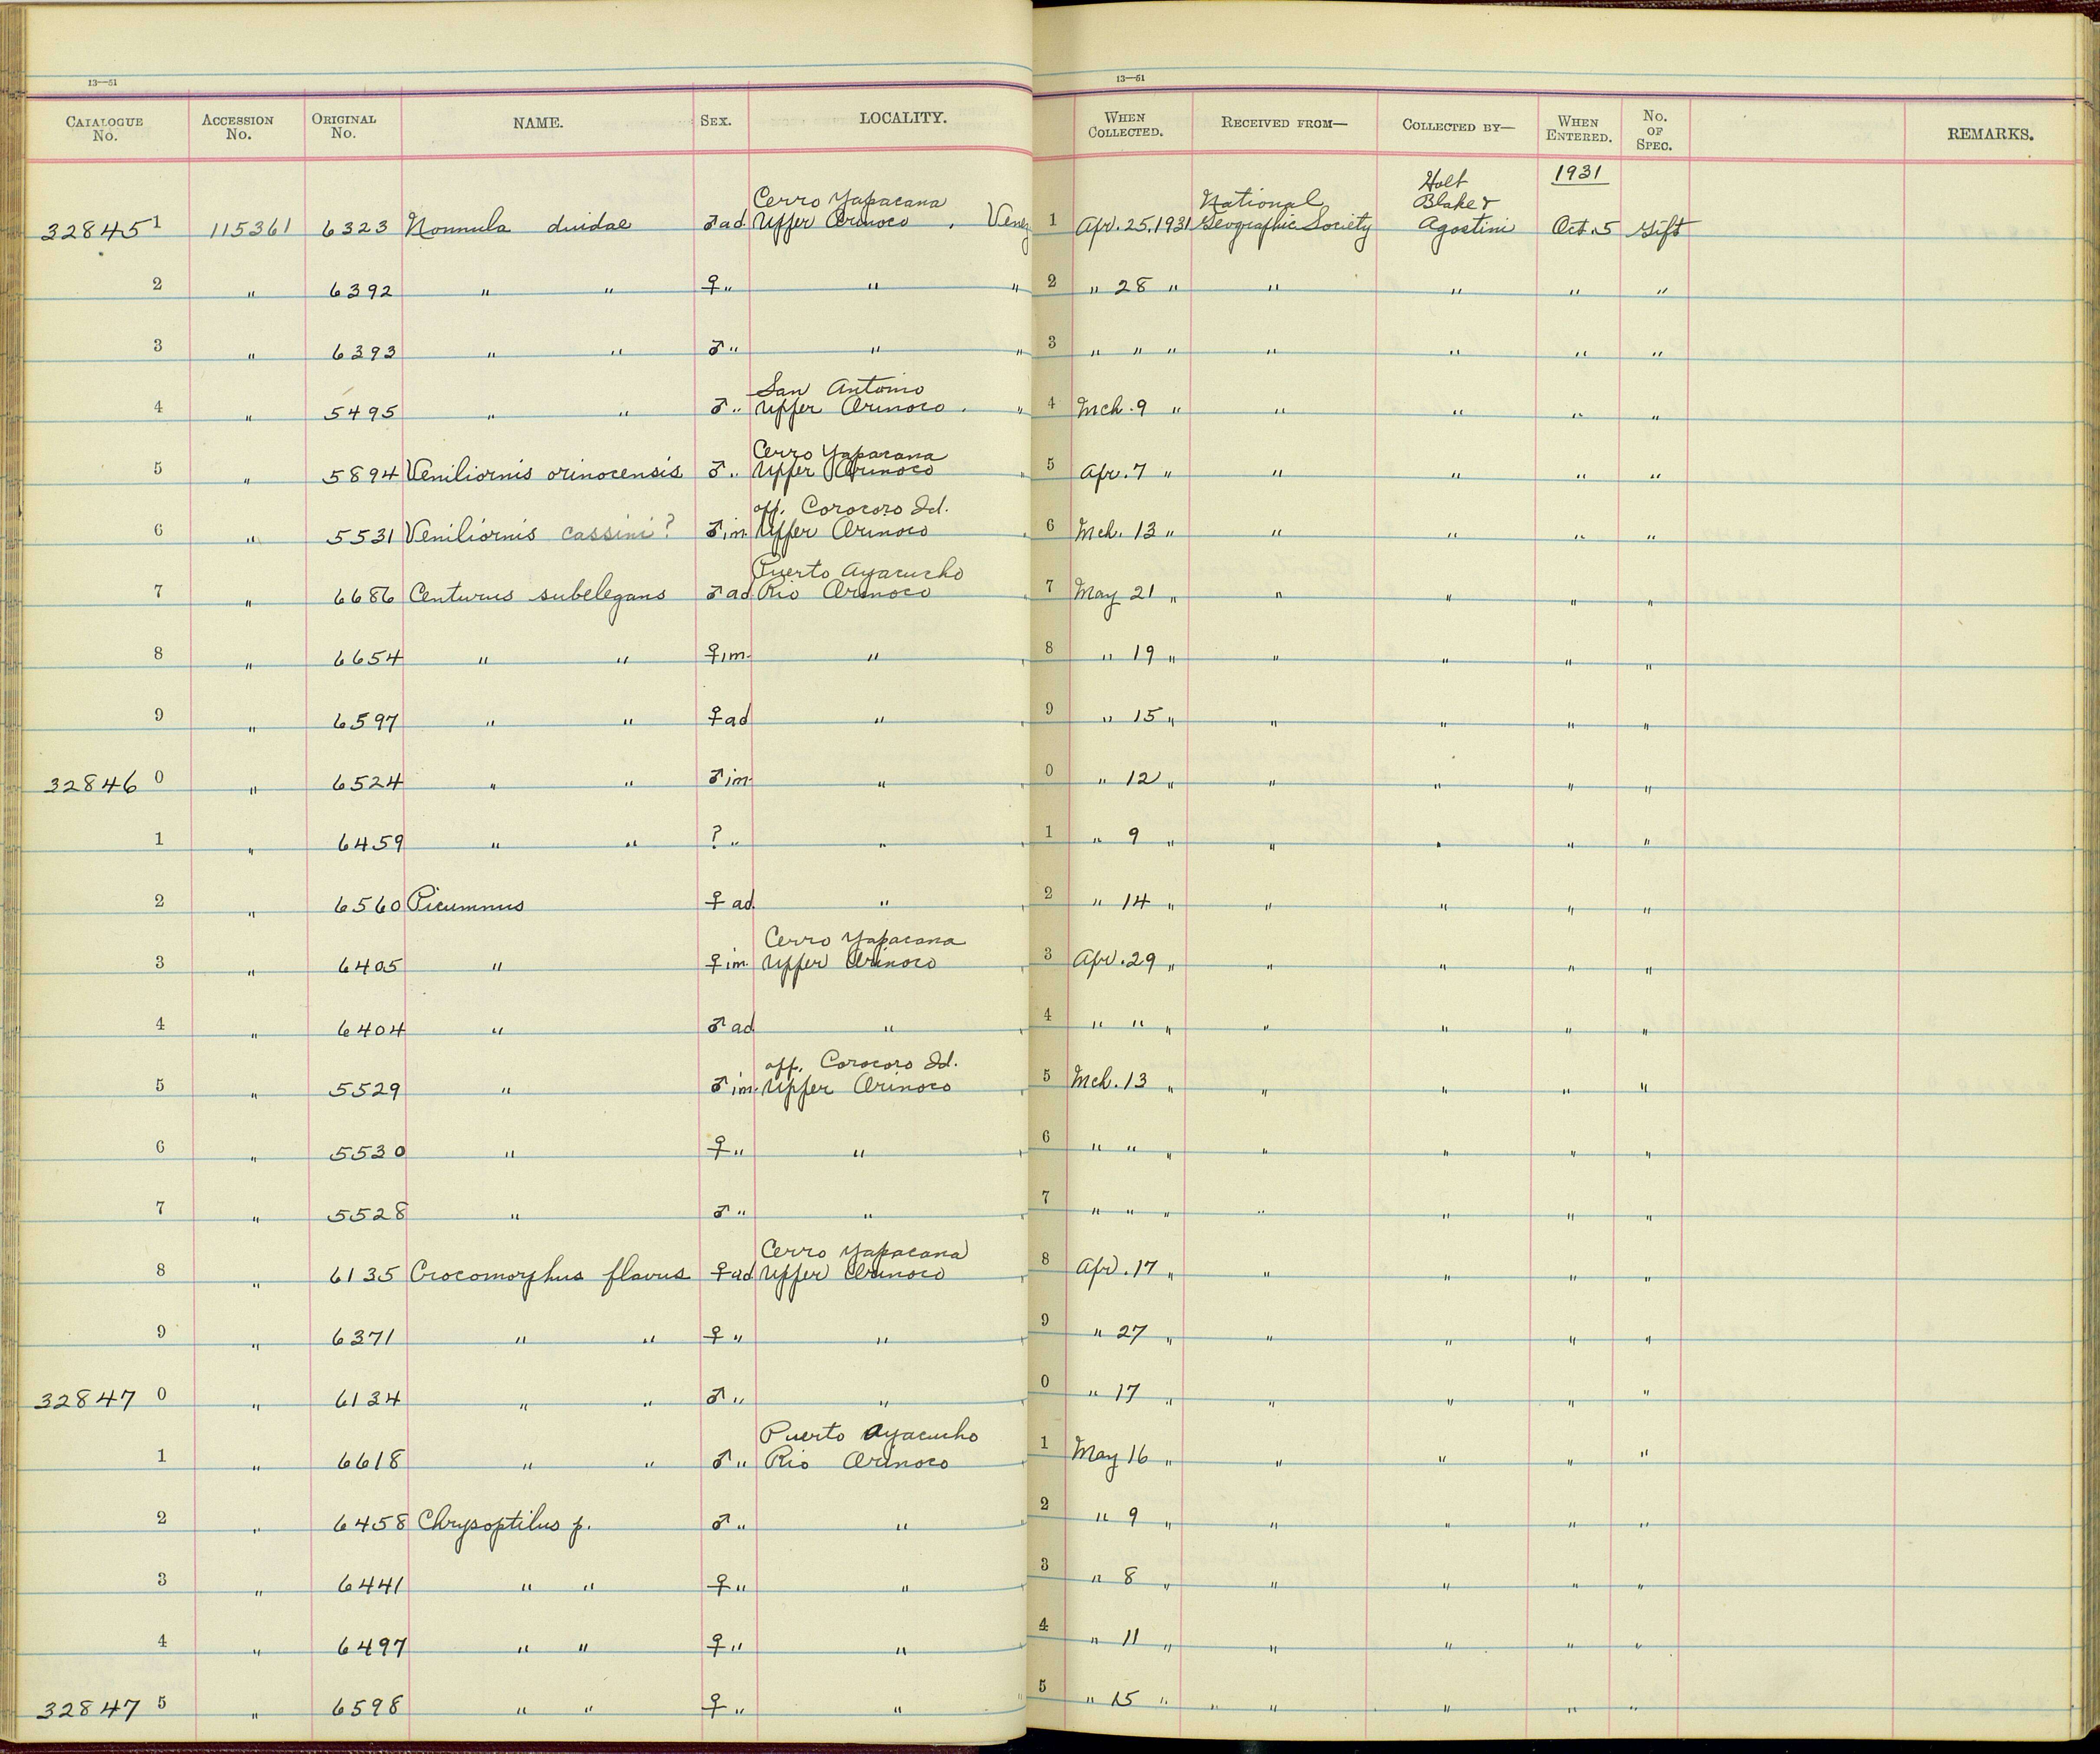 13—51
13—51
CATALOGUE No. ACCESSION No. ORIGINAL No. NAME. SEX. LOCALITY. WHEN COLLECTED. RECEIVED FROM— COLLECTED BY— WHEN ENTERED. No. OF SPEC. REMARKS.
1931
Cerro Yapacana National Holt Blake &
328451 115361 6323 Nonnula duidae ♂ad Upper Orinoco, Venez 1 Apr. 25, 1931 Geographic Society Agostini Oct. 5 Gift
2 " 6392 " " ♀" " " 2 " 28 " " " " "
3 " 6393 " " ♂" " " 3 " " " " " " "
San Antonio
4 " 5495 " " ♂" Upper Orinoco. " 4 Mch. 9 " " " " "
Cerro Yapacana
5 " 5894 Veniliornis orinocensis ♂" Upper Orinoco " 5 Apr. 7 " " " " "
opp. Corocoro Id.
6 " 5531 Veniliornis cassini? ♂im. Upper Orinoco " 6 Mch. 13 " " " " "
Puerto Ayacucho
7 " 6686 Centurus subelegans ♂ad Rio Orinoco " 7 May 21 " " " " "
8 " 6654 " " ♀im. " " 8 " 19 " " " " "
9 " 6597 " " ♀ad " " 9 " 15 " " " " "
328460 " 6524 " " ♂im. " " 0 " 12 " " " " "
1 " 6459 " " ? " " " 1 " 9 " " " " "
2 " 6560 Picumnus ♀ad. " " 2 " 14 " " " " "
Cerro Yapacana
3 " 6405 " ♀im. Upper Orinoco " 3 Apr. 29 " " " " "
4 " 6404 " ♂ad " " 4 " " " " " " "
opp. Corocoro Id.
5 " 5529 " ♂im. Upper Orinoco " 5 Mch. 13 " " " " "
6 " 5530 " ♀" " " 6 " " " " " " "
7 " 5528 " ♂" " " 7 " " " " " " "
Cerro Yapacana
8 " 6135 Crocomorphus flavus ♀ad Upper Orinoco " 8 Apr. 17 " " " " "
9 " 6371 " " ♀" " " 9 " 27 " " " " "
328470 " 6134 " " ♂" " " 0 " 17 " " " " "
Puerto Ayacucho
1 " 6618 " " ♂" Rio Orinoco " 1 May 16 " " " " "
2 " 6458 Chrysoptilus p. ♂" " " 2 " 9 " " " " "
3 " 6441 " " ♀" " " 3 " 8 " " " " "
4 " 6497 " " ♀" " " 4 " 11 " " " " "
328475 " 6598 " " ♀" " " 5 " 15 " " " " " "